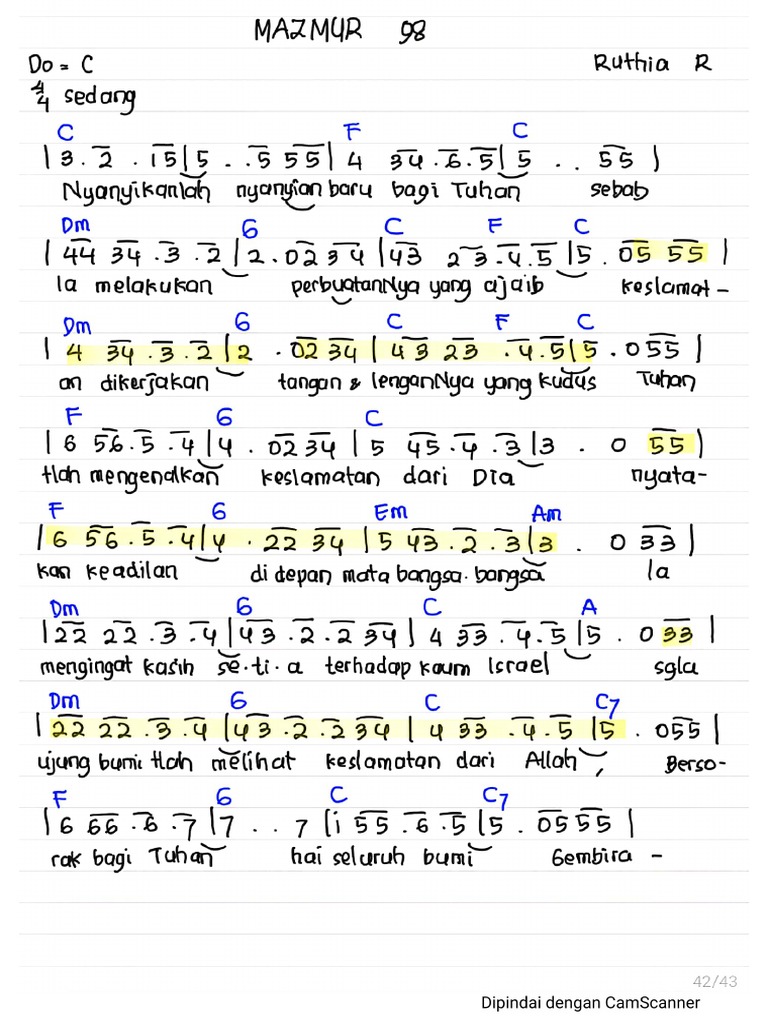 MAZMUR 98
Do = C
Ruthia R
4/4 sedang
C F C
| 3 . 2 . 15 | 5 . . 5 55 | 4 34 . 6 . 5 | 5 . . 55 |
Nyanyikanlah nyanyian baru bagi Tuhan sebab
Dm G C F C
| 44 34 . 3 . 2 | 2 . 0234 | 43 23 . 4 . 5 | 5 . 05 55 |
Ia melakukan perbuatanNya yang ajaib keslamat-
Dm G C F C
| 4 34 . 3 . 2 | 2 . 02 34 | 43 23 . 4 . 5 | 5 . 055 |
an dikerjakan tangan & lenganNya yang kudus Tuhan
F G C
| 6 56 . 5 . 4 | 4 . 0234 | 5 45 . 4 . 3 | 3 . 0 55 |
tlah mengenalkan keslamatan dari Dia nyata-
F G Em Am
| 6 56 . 5 . 4 | 4 . 22 34 | 5 43 . 2 . 3 | 3 . 0 33 |
kan keadilan di depan mata bangsa-bangsa Ia
Dm G C A
| 22 22 . 3 . 4 | 43 . 2 . 2 34 | 4 33 . 4 . 5 | 5 . 0 33 |
mengingat kasih se.ti.a terhadap kaum Israel sgla
Dm G C C7
| 22 22 . 3 . 4 | 43 . 2 . 234 | 4 33 . 4 . 5 | 5 . 055 |
ujung bumi tlah melihat keslamatan dari Allah, Berso-
F G C C7
| 6 66 . 6 . 7 | 7 . . 7 | i 55 . 6 . 5 | 5 . 0555 |
rak bagi Tuhan hai seluruh bumi Gembira -
42/43
Dipindai dengan CamScanner